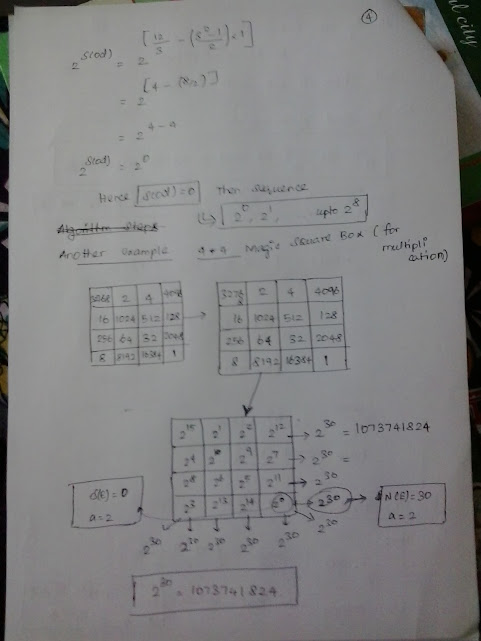 ④
2^S(od) = 2^[12/3 - (3^2-1/2)×1]
= 2^[4 - (8/2)]
= 2^4-4
2^S(od) = 2^0
Hence S(od)=0 Then sequence
Algorithm Steps ↳ 2^0, 2^1, ..... upto 2^8
Another example 4*4 Magic Square Box (for multiplication)
32768 2 4 4096
16 1024 512 128
256 64 32 2048
8 8192 16384 1
32768 2 4 4096
16 1024 512 128
256 64 32 2048
8 8192 16384 1
2^15 2^1 2^2 2^12 → 2^30 = 1073741824
2^4 2^10 2^9 2^7 → 2^30 =
2^8 2^6 2^5 2^11 → 2^30
2^3 2^13 2^14 2^0 → 2^30 → N(E)=30
a=2
S(E)=0
a=2
2^30 2^30 2^30 2^30 2^30 2^30
2^30 = 1073741824